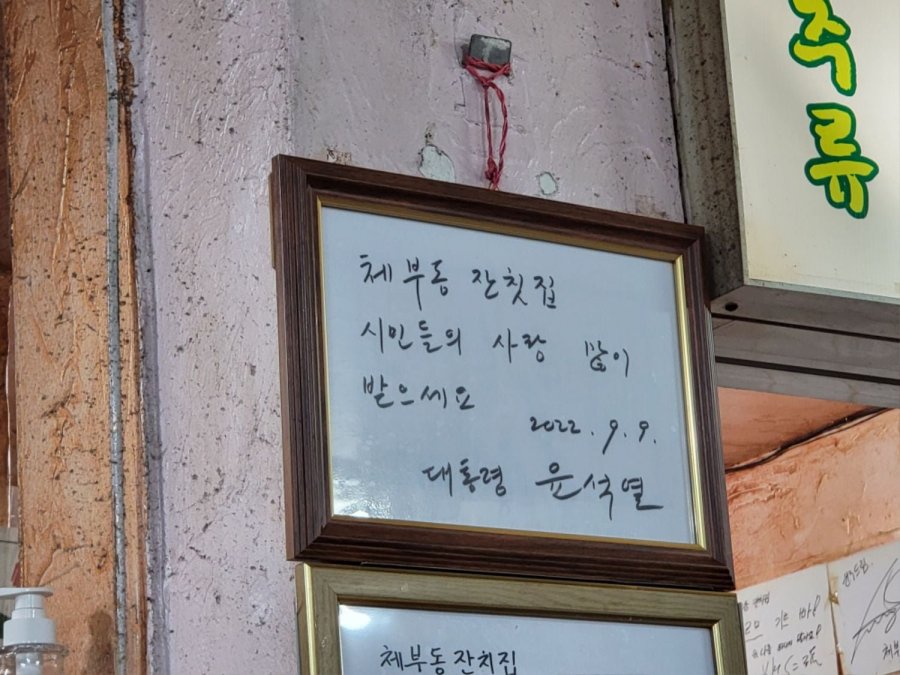 주류
체부동 잔칫집
시민들의 사랑 많이
받으세요
2022. 9. 9.
대통령 윤석열
체부동잔치집